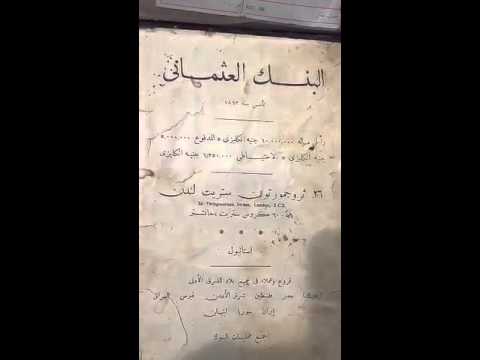 البنك العثماني
تأسس سنة ١٨٦٣
رأس ماله ١٠,٠٠٠,٠٠٠ جنيه انكليزي * المدفوع ٥,٠٠٠,٠٠٠
جنيه انكليزي * الاحتياطي ١,٢٥٠,٠٠٠ جنيه انكليزي
٢٦ ثروجمورتون ستريت لندن
26 Throgmorton Street, London, E.C.2.
٦٠ كروس ستريت منشستر
استانبول
فروع وعملاء في جميع بلاد الشرق الأدنى
مصر فلسطين شرق الأردن قبرص العراق
إيران سوريا لبنان
جميع عمليات البنوك